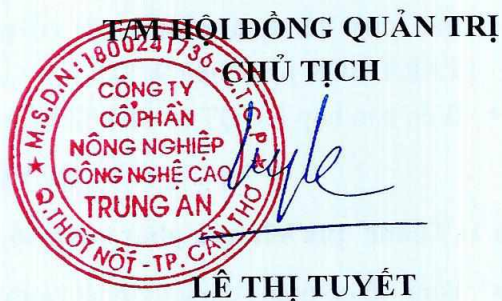 T/M HỘI ĐỒNG QUẢN TRỊ
CHỦ TỊCH
M.S.D.N:1800241736-C.T.C.P
CÔNG TY
CỔ PHẦN
NÔNG NGHIỆP
CÔNG NGHỆ CAO
TRUNG AN
Q.THỐT NỐT - TP. CẦN THƠ
LÊ THỊ TUYẾT